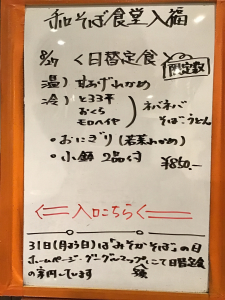 和そば食堂入福
8/27 〈日替定食〉 限定数
温) 甘あげわかめ
冷) とろろ
おくら
モロヘイヤ
ネバネバ
そば・うどん
・おにぎり(若菜わかめ)
・小鉢 2品付 ¥850,-
⇐ 入口こちら ⇐
31日(月末日)は"みそかそば"の日
ホームページ・グーグルマップにて日替定食
の案内しています